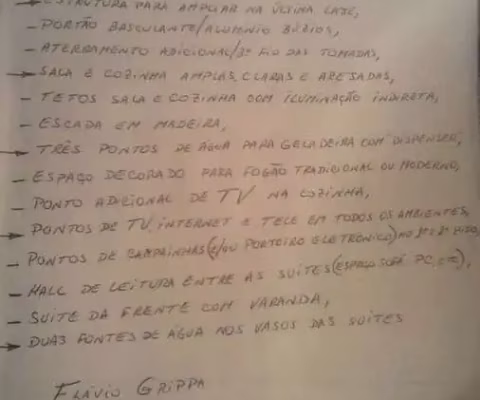 → ESTRUTURA PARA AMPLIAR NA ÚLTIMA LAJE,
- PORTÃO BASCULANTE/ALUMÍNIO BÚZIOS,
- ATERRAMENTO ADICIONAL/3º FIO DAS TOMADAS,
→ SALA E COZINHA AMPLAS, CLARAS E AREJADAS,
- TETOS SALA E COZINHA COM ILUMINAÇÃO INDIRETA,
- ESCADA EM MADEIRA,
→ TRÊS PONTOS DE ÁGUA PARA GELADEIRA COM DISPENSER,
- ESPAÇO DECORADO PARA FOGÃO TRADICIONAL OU MODERNO,
- PONTO ADICIONAL DE TV NA COZINHA,
→ PONTOS DE TV, INTERNET E TELE EM TODOS OS AMBIENTES,
- PONTOS DE CAMPAINHAS (E/OU PORTEIRO ELETRÔNICO) NO 1º E 2º PISO,
- HALL DE LEITURA ENTRE AS SUÍTES (ESPAÇO SOFÁ, PC, ETC),
- SUÍTE DA FRENTE COM VARANDA,
→ DUAS FONTES DE ÁGUA NOS VASOS DAS SUÍTES
FLÁVIO GRIPPA